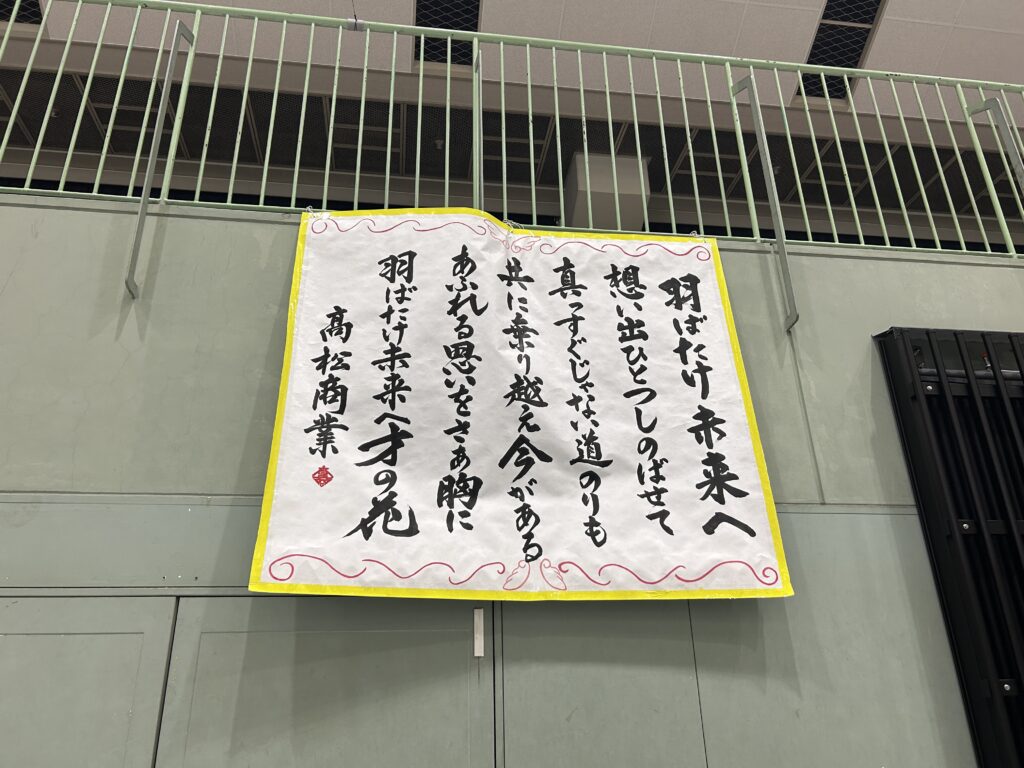 羽ばたけ未来へ
想い出ひとつしのばせて
真っすぐじゃない道のりも
共に乗り越え今がある
あふれる思いをさぁ胸に
羽ばたけ未来へ才の花
高松商業